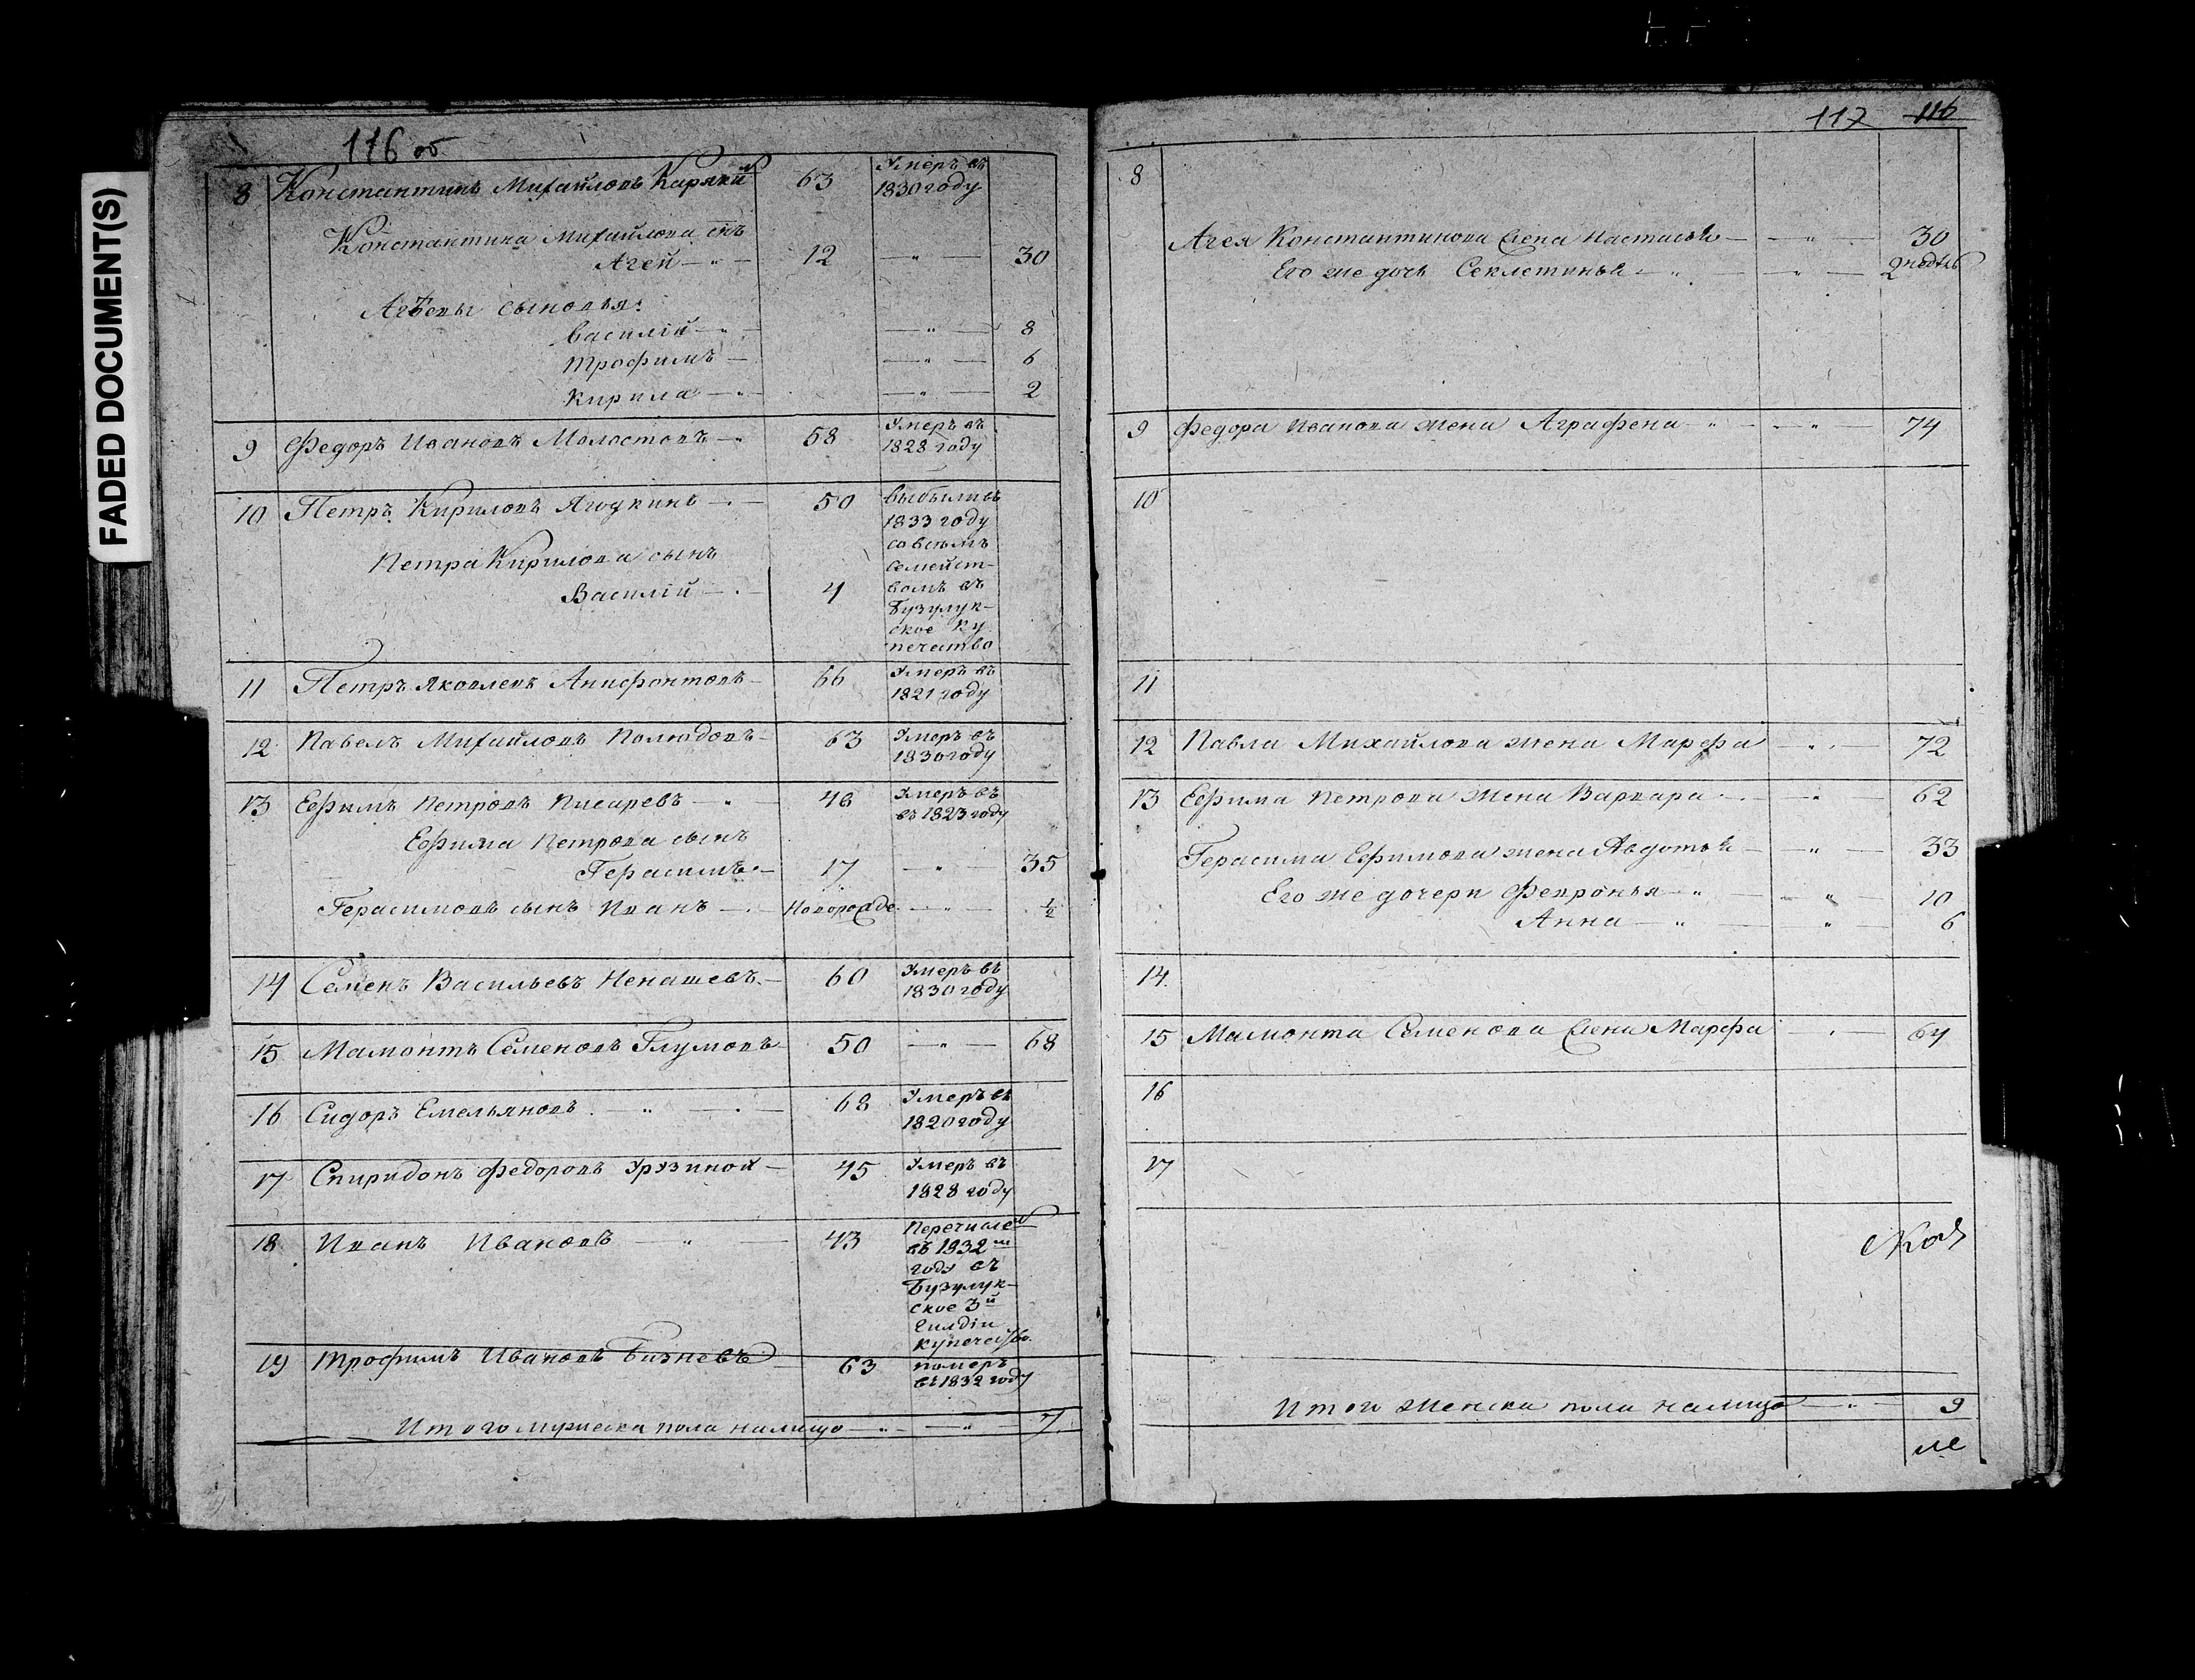 FADED DOCUMENT(S)
116 об
8 Константинъ Михайловъ Карякинъ 63 Умеръ въ 1830 году
Константина Михайлова снъ
Агей 12 — " — 30
Агѣевы сыновья:
Василій — " — 8
Трофимъ — " — 6
Кирила — " — 2
9 Федоръ Ивановъ Молостовъ 58 Умеръ въ 1828 году
10 Петръ Кириловъ Ягодкинъ 50 выбылъ въ
1833 году
со всѣмъ
Петра Кирилова сынъ семейст-
Василій 4 вомъ въ
Бузулук-
ское ку
печество
11 Петръ Яковлевъ Анифонтовъ 66 Умеръ въ 1821 году
12 Павелъ Михайловъ Полюдовъ 63 Умеръ въ 1830 году
13 Ефимъ Петровъ Писаревъ 46 Умеръ въ
въ 1823 году
Ефима Петрова сынъ
Герасимъ 17 — " — 35
Герасимовъ сынъ Иванъ — " — ½
14 Семенъ Васильевъ Ненашевъ 60 Умеръ въ 1830 году
15 Мамонтъ Семеновъ Глумовъ 50 — " — 68
16 Сидоръ Емельяновъ — " — 68 Умеръ въ 1820 году
17 Спиридонъ Федоровъ 45 Умеръ въ 1828 году
18 Иванъ Ивановъ — " — 43 Перечислен
въ 1832 м
году въ
Бузулук-
ское 3й
гилдіи
купечество.
19 Трофимъ Ивановъ Бизневъ 63 померъ
въ 1832 году
Итого мужеска пола налицо — " — 7
117 116
8
Агея Константинова жена Настасья — " — 30
Его же дочь Секлетинья — " — 2 недѣль
9 Федора Иванова жена Аграфена — " — 74
10
11
12 Павла Михайлова жена Марфа — " — 72
13 Ефима Петрова жена Варвара — " — 62
Герасима Ефимова жена Авдотья — " — 33
Его же дочери Февронья — " — 10
Анна — " — 6
14.
15 Мамонта Семенова жена Марфа — 64
16
17
Итого женска пола налицо — " — 9